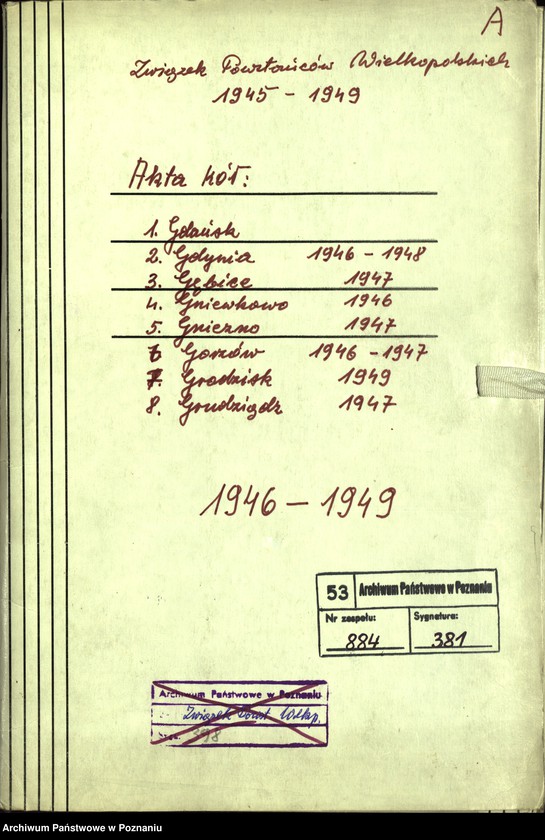 A
Związek Powstańców Wielkopolskich
1945 - 1949
Akta kół:
1. Gdańsk
2. Gdynia 1946 - 1948
3. Gębice 1947
4. Gniewkowo 1946
5. Gniezno 1947
6 Gorzów 1946 - 1947
7. Grodzisk 1949
8. Grudziądz 1947
1946 - 1949
53 Archiwum Państwowe w Poznaniu
Nr zespołu: Sygnatura:
884 381
Archiwum Państwowe w Poznaniu
Związek Powst. Wlkp.
398
Archiwum Państwowe w Poznaniu